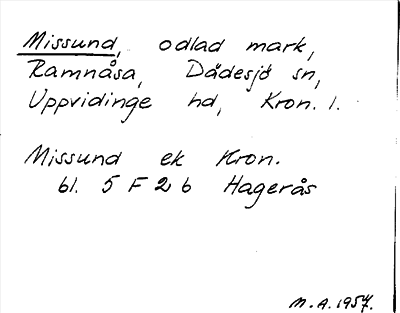 Missund, odlad mark,
Ramnåsa, Dädesjö sn,
Uppvidinge hd, Kron. l.
Missund ek Kron.
bl. 5 F 2 b Hagerås
M.A. 1957.